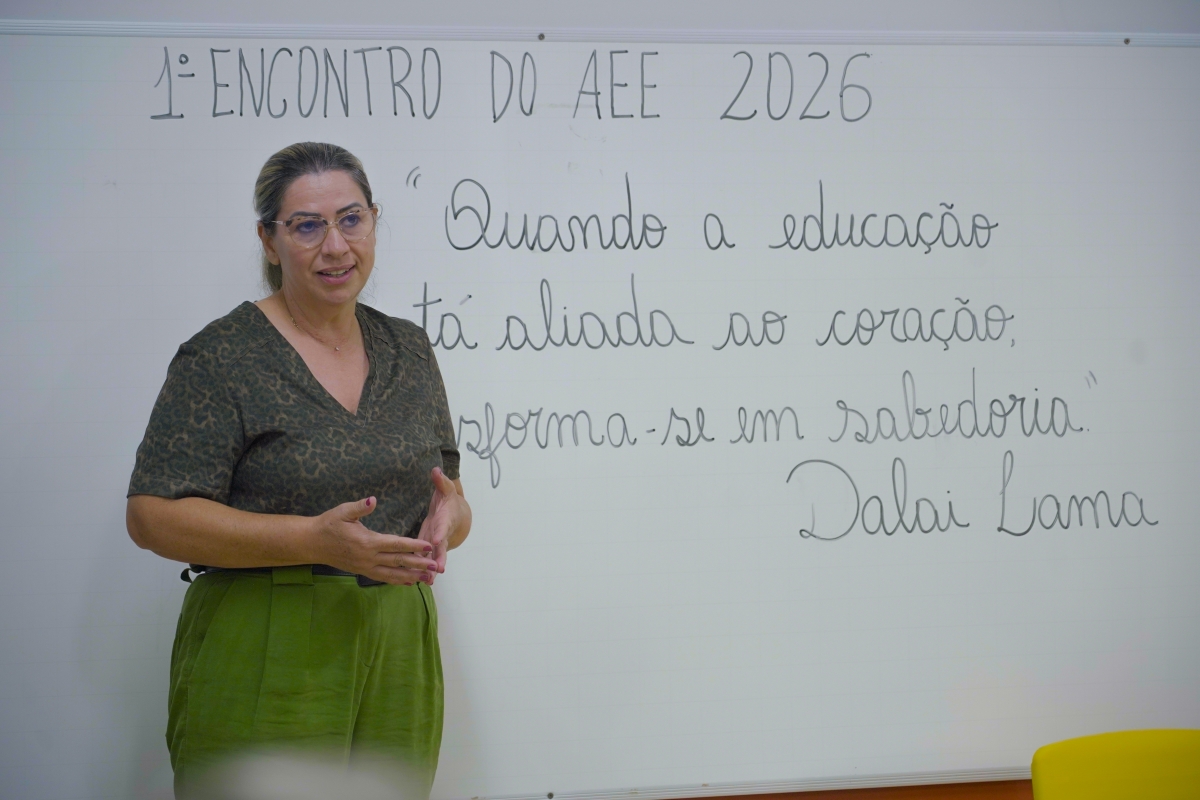 1º ENCONTRO DO AEE 2026
"Quando a educação
tá aliada ao coração,
sforma-se em sabedoria."
Dalai Lama